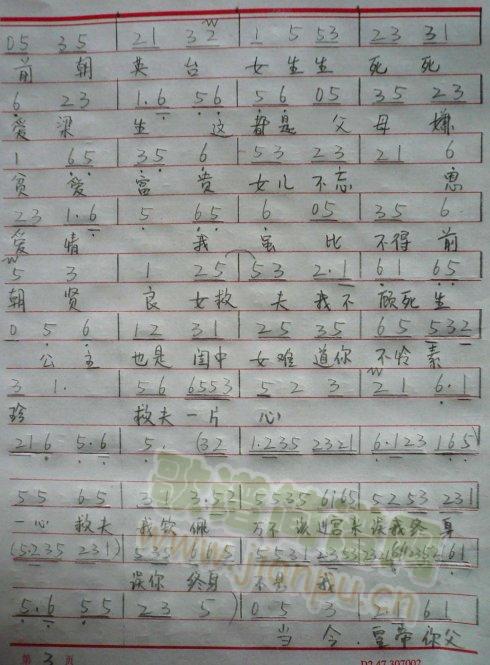 05 35 | 21 32 | 1 5 53 | 23 31
前 朝 英 台 女 生 生 死 死
6 23 | 1·6 56 | 56 05 | 35 23
爱 梁 生 这 都是 父 母 嫌
1 65 | 35 6 | 53 23 | 21 6
贫 爱 富 贵 女儿 不忘 恩
23 1·6 | 5 65 | 6 05 | 35 6
爱 情 我 虽 比 不得 前
5 3 | 1 25 | 53 2·1 | 61 65
朝 贤 良 女救 夫 我不 顾死 生
0 5 6 | 12 31 | 25 35 | 65 532
公 主 也是 闺中 女 难 道你 不怜 素
3 1· | 56 6553 | 5 2 3 | 21 6·1
珍 救夫 一片 心
216 5·6 | 5· (32 | 1·235 2321 | 6·123 165
55 65 | 35 3·532 | 5535 6165 | 5253 231
一心 救夫 我钦佩 万不该进宫来误我终 身
(5·235 231) | 535 6165 | 5531 2353
误你 终身 不 我
5·6 55 | 23 5 ) | 0 5 3 | 2·1 61
当 今 皇帝 你父
歌谱简谱网
www.jianpu.cn
第 3 页